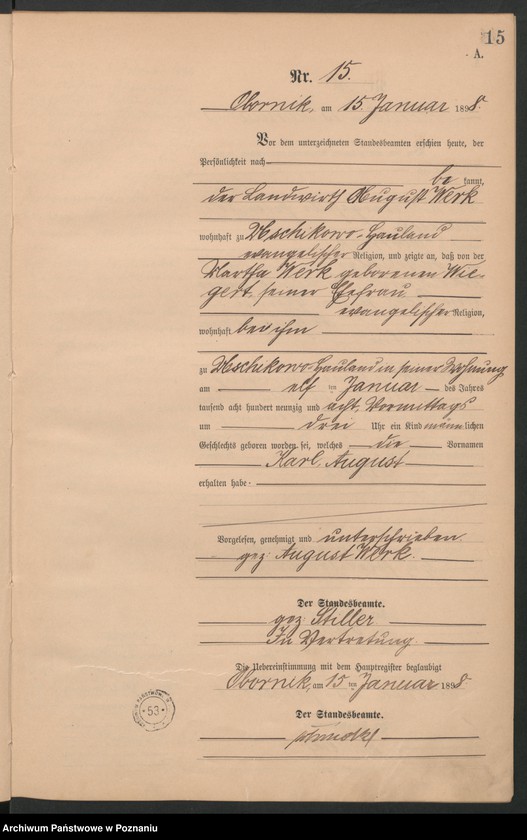 15
A.
Nr. 15.
Obornik, am 15 Januar 1898.
Vor dem unterzeichneten Standesbeamten erschien heute, der
Persönlichkeit nach
be kannt,
der Landwirth August Werk
wohnhaft zu Uschikowo-Hauland
evangelischer Religion, und zeigte an, daß von der
Martha Werk geborenen Wie-
gert, seiner Ehefrau
evangelischer Religion,
wohnhaft bei ihm
zu Uschikowo-Hauland in seiner Wohnung
am elf ten Januar des Jahres
tausend acht hundert neunzig und acht, Vormittags
um drei Uhr ein Kind männlichen
Geschlechts geboren worden sei, welches die Vornamen
Karl August
erhalten habe.
Vorgelesen, genehmigt und unterschrieben
gez: August Werk.
Der Standesbeamte.
gez: Stiller
In Vertretung.
Die Uebereinstimmung mit dem Hauptregister beglaubigt
Obornik, am 15 ten Januar 1898
Der Standesbeamte.
53
Archiwum Państwowe w Poznaniu